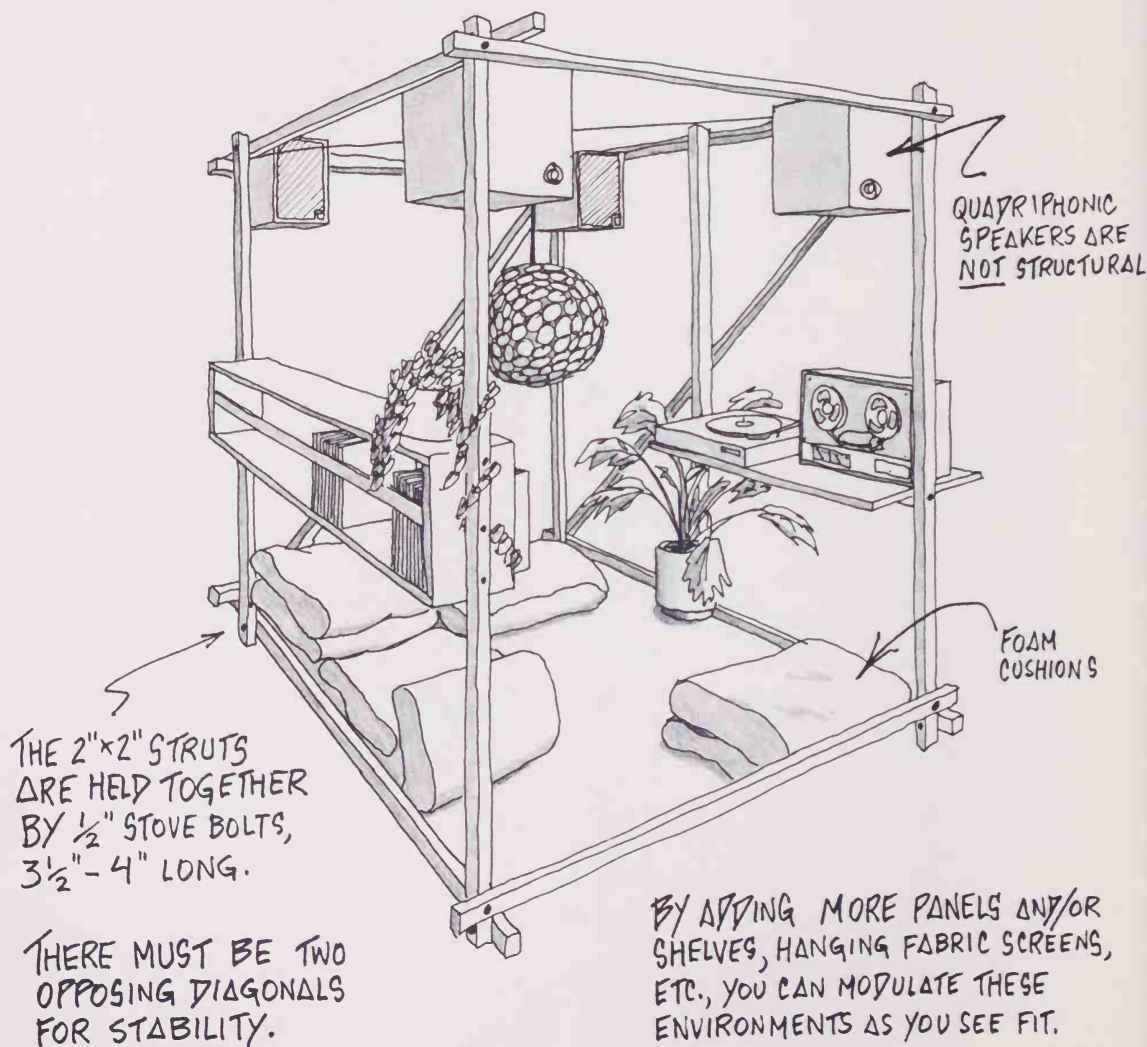 QUADRIPHONIC
SPEAKERS ARE
NOT STRUCTURAL
FOAM
CUSHIONS
THE 2"×2" STRUTS
ARE HELD TOGETHER
BY ½" STOVE BOLTS,
3½"- 4" LONG.
THERE MUST BE TWO
OPPOSING DIAGONALS
FOR STABILITY.
BY ADDING MORE PANELS AND/OR
SHELVES, HANGING FABRIC SCREENS,
ETC., YOU CAN MODULATE THESE
ENVIRONMENTS AS YOU SEE FIT.